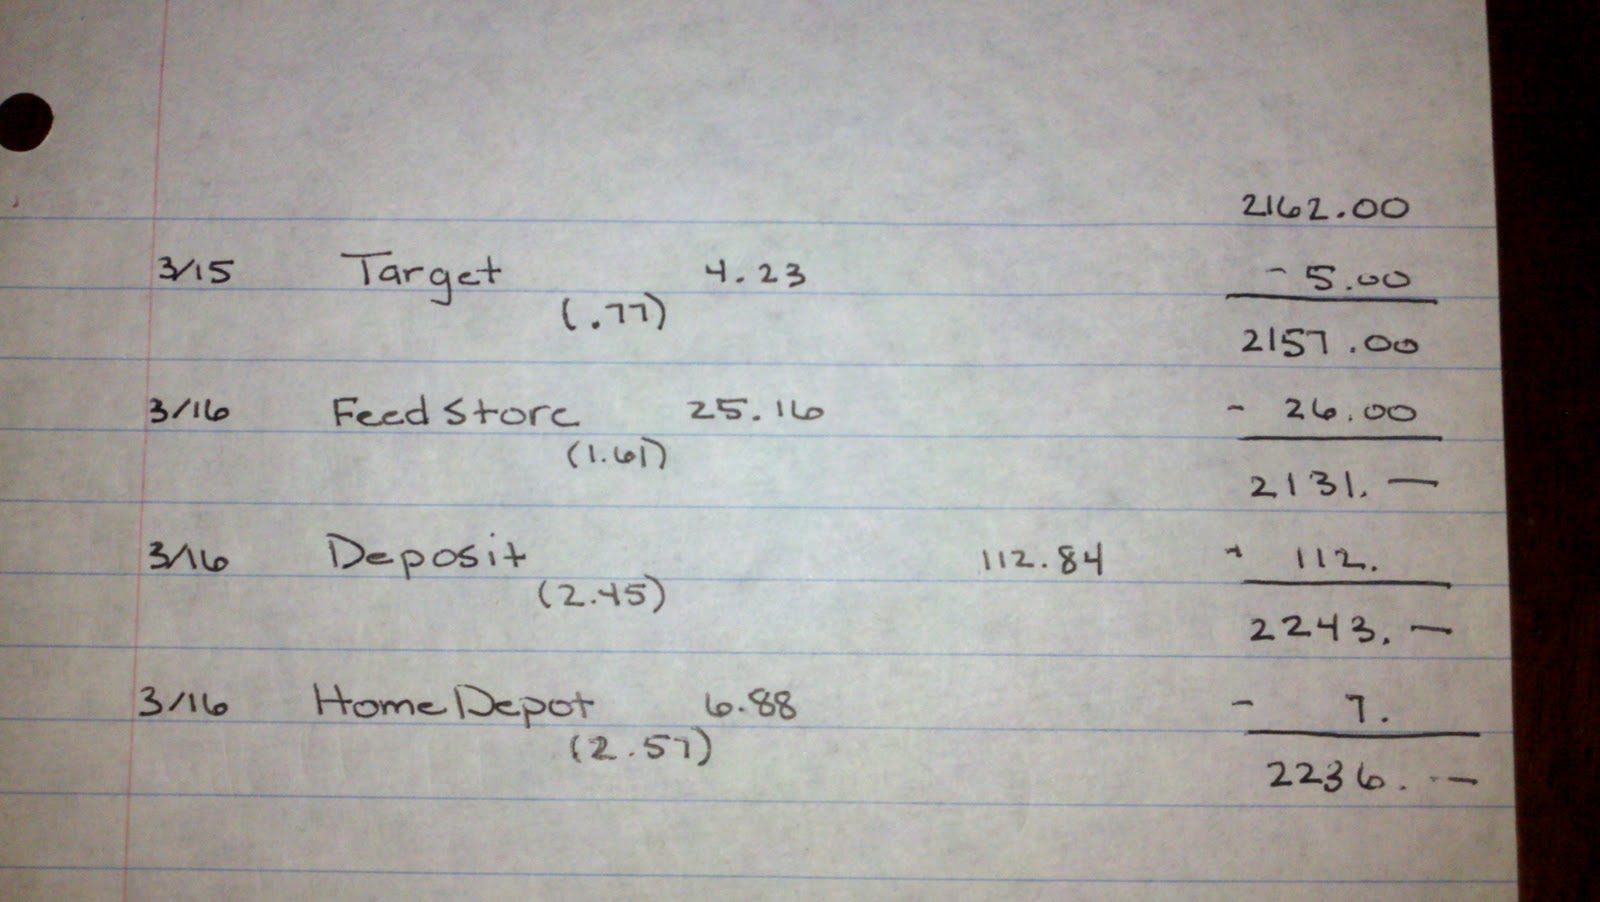 2162.00
3/15 Target 4.23 - 5.00
(.77)
2157.00
3/16 Feed Store 25.16 - 26.00
(1.61)
2131. —
3/16 Deposit 112.84 + 112.
(2.45)
2243. —
3/16 Home Depot 6.88 - 7.
(2.57)
2236. —